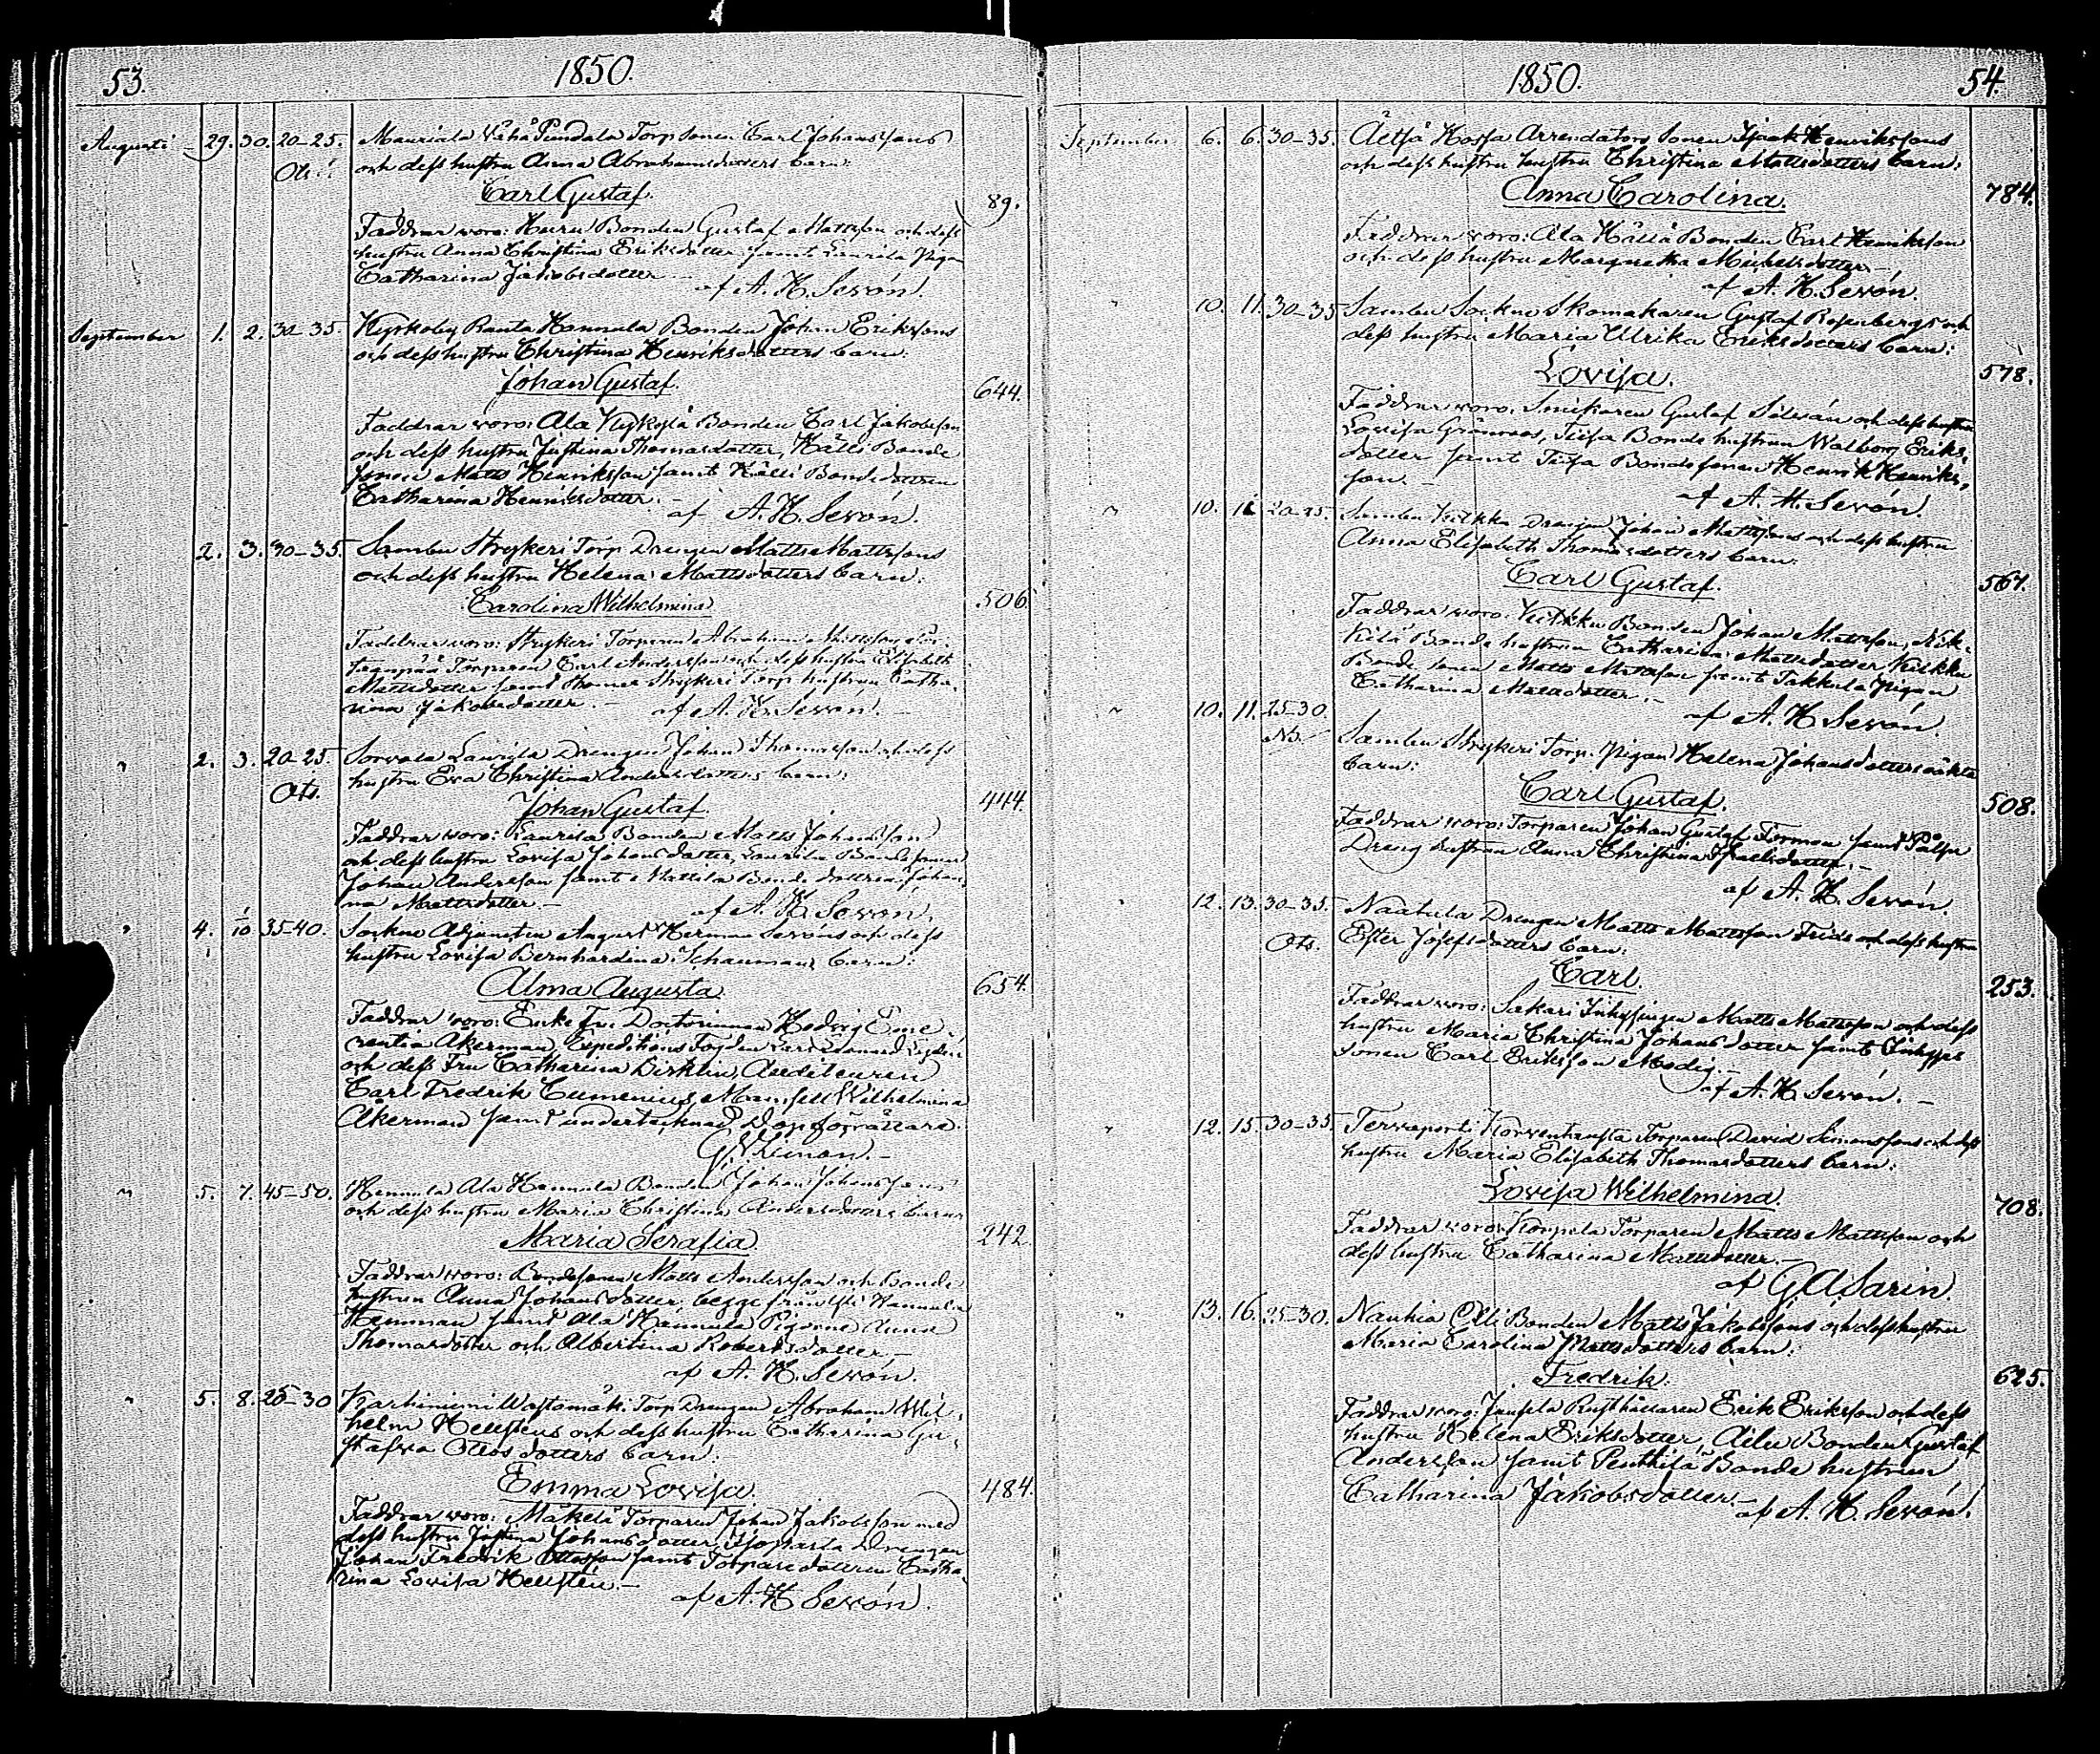 53. 1850.
Augusti – 29. 30. 20–25. Mauriala Torp Sonen Carl Johanssons
och dess hustru Anna Abrahamsdotters barn:
Carl Gustaf. 89.
Faddrar woro: Bonden Gustaf Mattsson och dess
hustru Anna Christina Eriksdotter samt Laurila Pigan
Catharina Jakobsdotter
af A. H. Sevón.
September 1. 2. 30–35. Kyrkoby Ranta Hannula Bonden Johan Erikssons
och dess hustru Christina Henriksdotters barn:
Johan Gustaf. 644.
Faddrar woro: Ala Bonden Carl Jakobsson
och dess hustru Justina Thomasdotter, Källi Bonde
sonen Matts Henriksson samt Källi Bondedottren
Catharina Henriksdotter. –
af A. H. Sevón.
2. 3. 30–35. Sambu Strykeri Torp Drengen Matts Mattssons
och dess hustru Helena Mattsdotters barn:
Carolina Wilhelmina 506.
Faddrar woro: Strykeri Torparen Abraham
Torparen Carl Andersson och dess hustru Elisabeth
Mattsdotter samt Strykeri Torp hustrun Catha-
rina Jakobsdotter. –
af A. H. Sevón. –
" 2. 3. 20–25. Sorvala Laurila Drengen Johan Thomasson och dess
hustru Eva Christina Andersdotters barn:
Johan Gustaf. 444.
Faddrar woro: Laurila Bonden Matts Johansson
och dess hustru Lovisa Johansdotter, Laurila Bondesonen
Johan Andersson samt Mattila Bonde dottren Johan-
na Mattsdotter. –
af A. H. Sevón.
" 4. 1/10 35–40. Sockne Adjuncten August Herman Sevóns och dess
hustru Lovisa Bernhardina Schaumans barn:
Alma Augusta. 654.
Faddrar woro: Enke Fru Doctorinnan Hedvig Eme-
rentia Åkerman, Expeditions Fogden
och dess Fru Catharina Auditeuren
Carl Fredrik Cumenius, Mamsell Wilhelmina
Åkerman samt undertecknad Dopförrättare.
" 5. 7. 45–50. Hannula Ala Hannula Bonden Johan Johanssons
och dess hustru Maria Christina Andersdotters barn:
Maria Serafia. 242.
Faddrar woro: Bondesonen Matts Andersson och Bonde
hustrun Anna Johansdotter, begge från Hannula
Hemman samt Ala Hannula Pigorne Anna
Thomasdotter och Albertina Robertsdotter. –
af A. H. Sevón.
" 5. 8. 25–30 Karhiniemi Torp Drengen Abraham Wil-
helm Hellstens och dess hustru Catharina Gu-
stafva dotters barn:
Emma Lovisa. 484.
Faddrar woro: Mäkelä Torparen Johan Jakobsson med
dess hustru Justina Johansdotter, Drengen
Johan Fredrik Ottosson samt Torparedottren Catha-
rina Lovisa Hellstén. –
af A. H. Sevón.
1850. 54.
September 6. 6. 30–35. Äetsä Hossa Arrendators Sonen Isaak Henrikssons
och dess hustru hustru Christina Mattsdotters barn:
Anna Carolina. 784.
Faddrar woro: Ala Källä Bonden Carl Henriksson
och dess hustru Margaretha Michelsdotter. –
af A. H. Sevón.
" 10. 11. 30–35 Sambu Sockne Skomakaren Gustaf Rosenbergs och
dess hustru Maria Ulrika Eriksdotters barn:
Lovisa. 578.
Faddrar woro: Snickaren Gustaf och dess hustru
Lovisa Grönroos, Bonde hustrun Walborg Eriks-
dotter samt Bondesonen Henrik Henriks-
son. –
af A. H. Sevón.
" 10. 11. 20–25. Sambu Drengen Johan Mattssons och dess hustru
Anna Elisabeth Thomasdotters barn:
Carl Gustaf. 567.
Faddrar woro: Bonden Johan Mattsson,
Bonde hustrun Catharina Mattsdotter
Bonde sonen Matts Mattsson samt Takkula Pigan
Catharina Mattsdotter. –
af A. H. Sevón.
" 10. 11. 25–30. Sambu Strykeri Torp. Pigan Helena Johansdotters oäkta
barn:
Carl Gustaf. 508.
Faddrar woro: Torparen Johan Gustaf Forsman samt
Dreng hustrun Anna Christina –
af A. H. Sevón.
12. 13. 30–35. Naatula Drengen Matts Mattsson Frids och dess hustru
Ester Josefsdotters barn:
Carl. 253.
Faddrar woro: Sakari Matts Mattsson och dess
hustru Maria Christina Johansdotter samt
sonen Carl Eriksson Modig. –
af A. H. Sevón. –
" 12. 15. 30–35. Torparen David Simonssons och dess
hustru Maria Elisabeth Thomasdotters barn:
Lovisa Wilhelmina. 708.
Faddrar woro: Korpela Torparen Matts Mattsson och
dess hustru Catharina Mattsdotter. –
af G A Sarin
" 13. 16. 25–30. Nauhia Olli Bonden Matts Jakobssons och dess hustru
Maria Carolina Mattsdotters barn:
Fredrik. 625.
Faddrar woro: Rusthållaren Erik Eriksson och dess
hustru Helena Eriksdotter, Bonden Gustaf
Andersson samt Penttilä Bonde hustrun
Catharina Jakobsdotter. –
af A. H. Sevón.